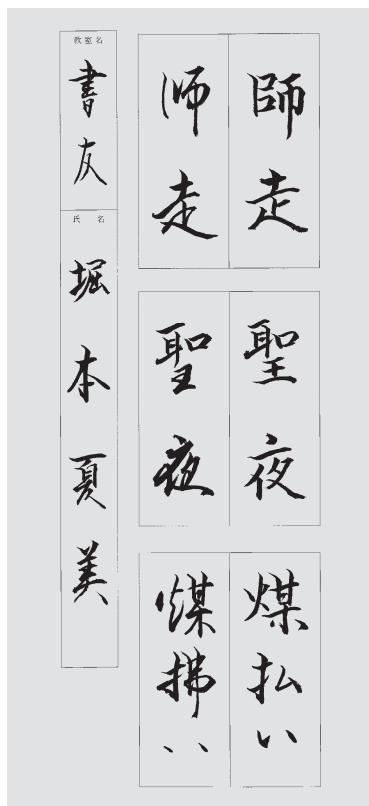 師走
师走
聖夜
聖夜
煤払い
煤拂い
教室名
書友
氏名
堀本夏美